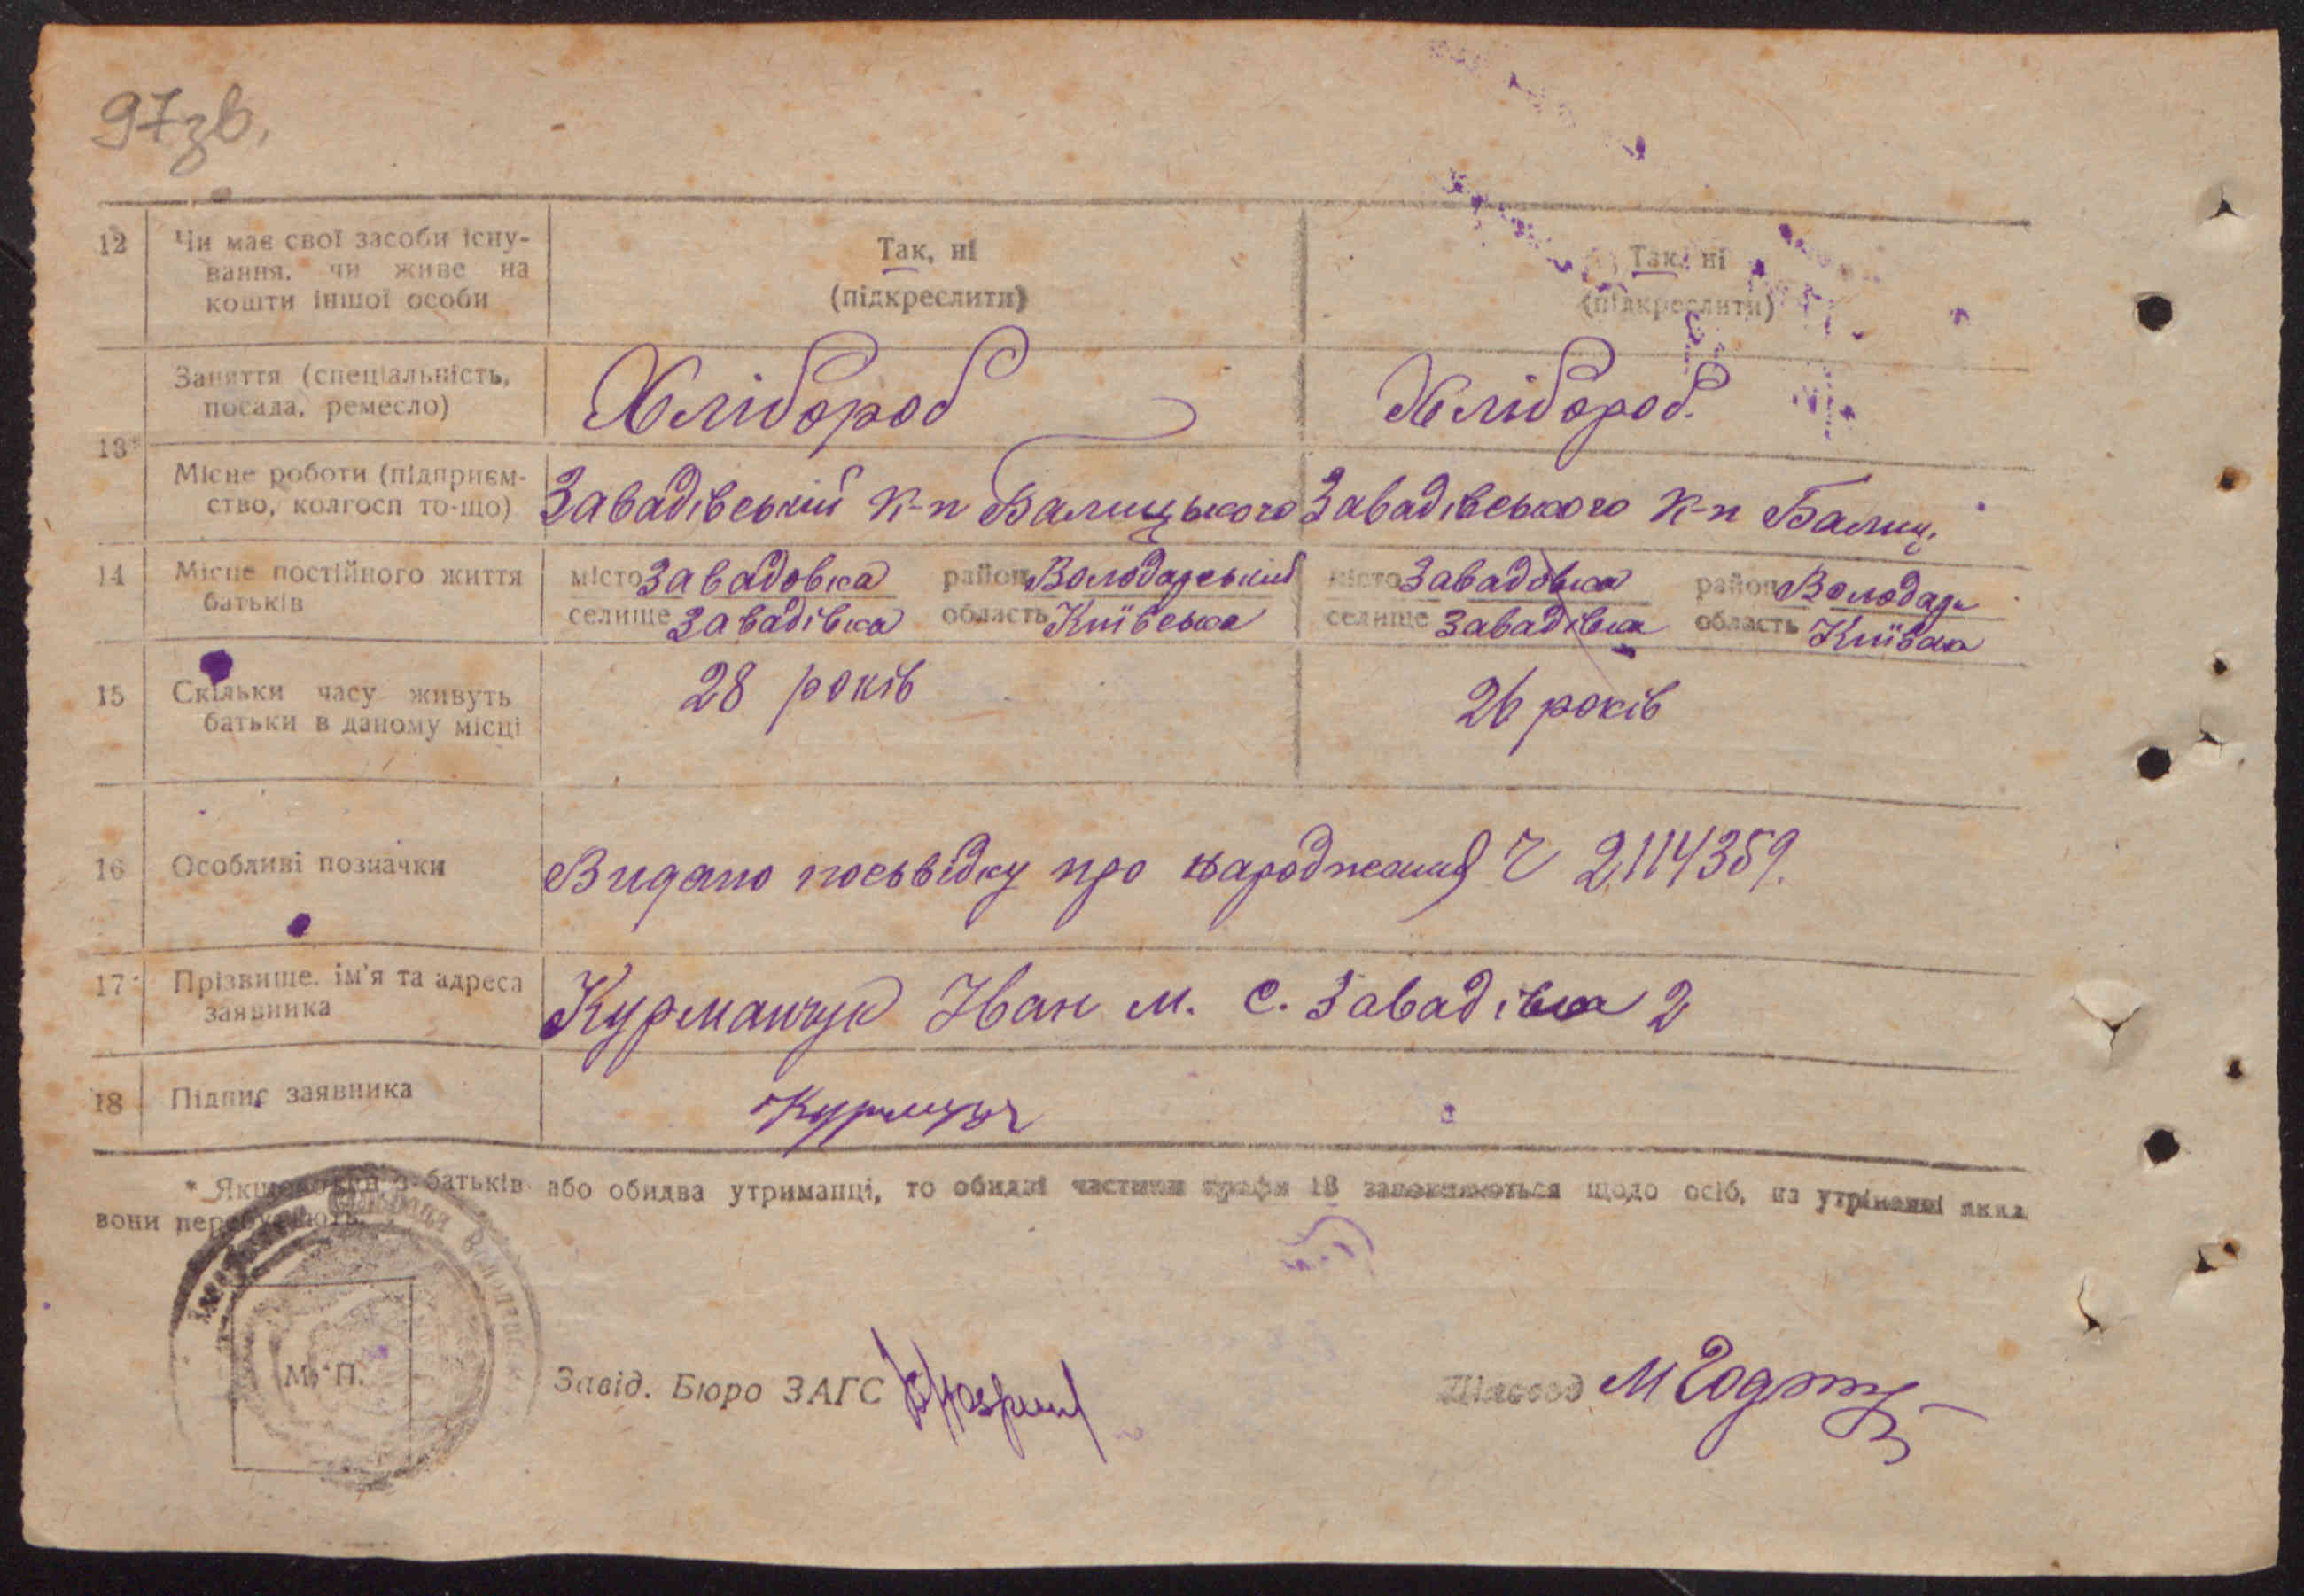 97зв.
12 Чи має свої засоби існу-
вання. чи живе на
кошти іншої особи
Так, ні
(підкреслити)
Так, ні
(підкреслити)
13*
Заняття (спеціальність,
посада, ремесло)
Хлібороб
Хлібороб.
Місце роботи (підприєм-
ство, колгосп то-що)
Завадівський к-п Балицького
Завадівського к-п Балиц.
14 Місце постійного життя
батьків
місто Завадовка район Володарський
селище Завадівка область Київська
місто Завадовка район Володар
селище Завадівка область Київська
15 Скільки часу живуть
батьки в даному місці
28 років
26 років
16 Особливі позначки
Видано посьвідку про народження Ч 2114359.
17 Прізвище. ім'я та адреса
заявника
Курманчук Іван М. с. Завадівка 2
18 Підпис заявника
* Якщо з батьків або обидва утриманці, то обидві частини графи 13 заповнюються щодо осіб, на утриманні яких
вони перебувають.
М. П.
Завід. Бюро ЗАГС
Діловод